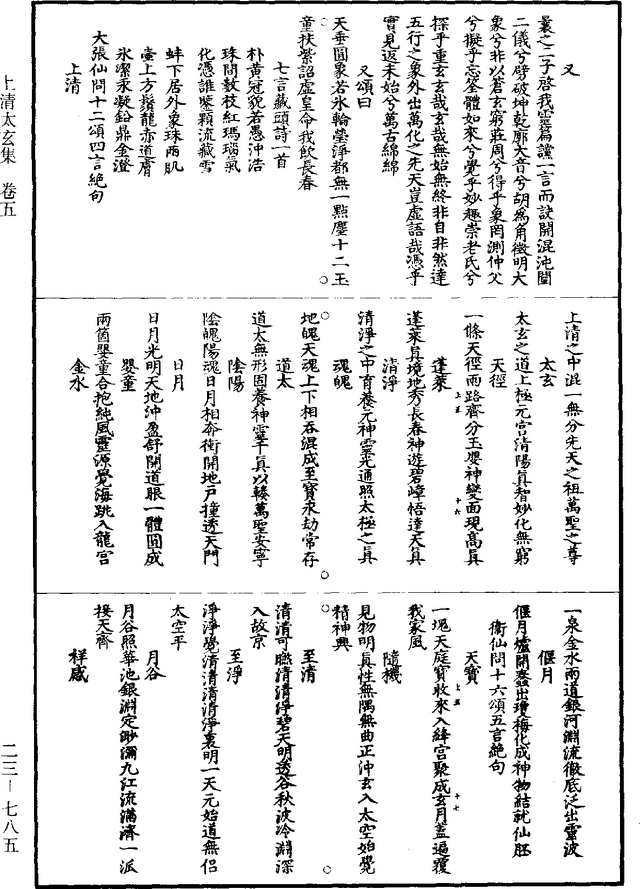 又
曩之二子啓我靈篇讜一言而訣開混沌闔
二儀兮劈破坤乾廓大音兮胡爲角徵明大
象兮非以蒼玄窮莊周兮得乎象罔測仲父
兮擬乎忘筌體如來兮覺乎妙趣崇老氏兮
探乎重玄玄哉玄哉無始無終非自非然達
五行之象外出萬化之先天豈虛語哉憑乎
實見返末始兮萬古綿綿
又頌曰
天垂圓象若氷輪瑩淨都無一點塵十二玉
童扶紫詔虛皇命我飲長春
七言藏頭詩一首
朴黄冠貌若愚沖浩
珠間數枝紅瑪瑙氣
化憑誰鬢顆流藏雪
蚌下居外象珠兩肌
臺上方鬚龍亦道膚
氷潔永凝鉛鼎金澄
大張仙問十二頌四言絶句
上清
上清之中混一無分先天之祖萬聖之尊
太玄
太玄之道上極元宫清陽真智妙化無窮
天徑
一條天徑兩路齊分玉嬰神變面現高真
蓬萊
蓬萊真境地秀長春神遊碧嶂悟達天真
清淨
清淨之中育養元神靈光通照太極之真
魂魄
地魄天魂上下相吞混成至寶永劫常存
道太
道太無形固養神靈千真以輳萬聖安寧
陰陽
陰魄陽魂日月相奔衝開地户撞透天門
日月
日月光明天地沖盈舒開道眼一體圓成
嬰童
兩箇嬰童合抱純風靈源覺海跳入龍宫
金水
一泉金水兩道銀河淵流徹底泛出靈波
偃月
偃月爐開蘂出瓊梅化成神物結就仙胚
衞仙問十六頌五言絶句
天寶
一塊天庭寶收來入絳宫聚成玄月蓋遍覆
我家風
隨機
見物明真性無隅無曲正沖玄入太空始覺
精神興
至清
清清可瞧清清淨碧天明透谷秋波冷淵深
入故京
至淨
淨淨覺清清清清淨裏明一天元始道無侣
太空平
月谷
月谷照華池銀淵定渺瀰九江流滿濟一派
接天齊
祥感
上清太玄集 卷五
二三—七八五